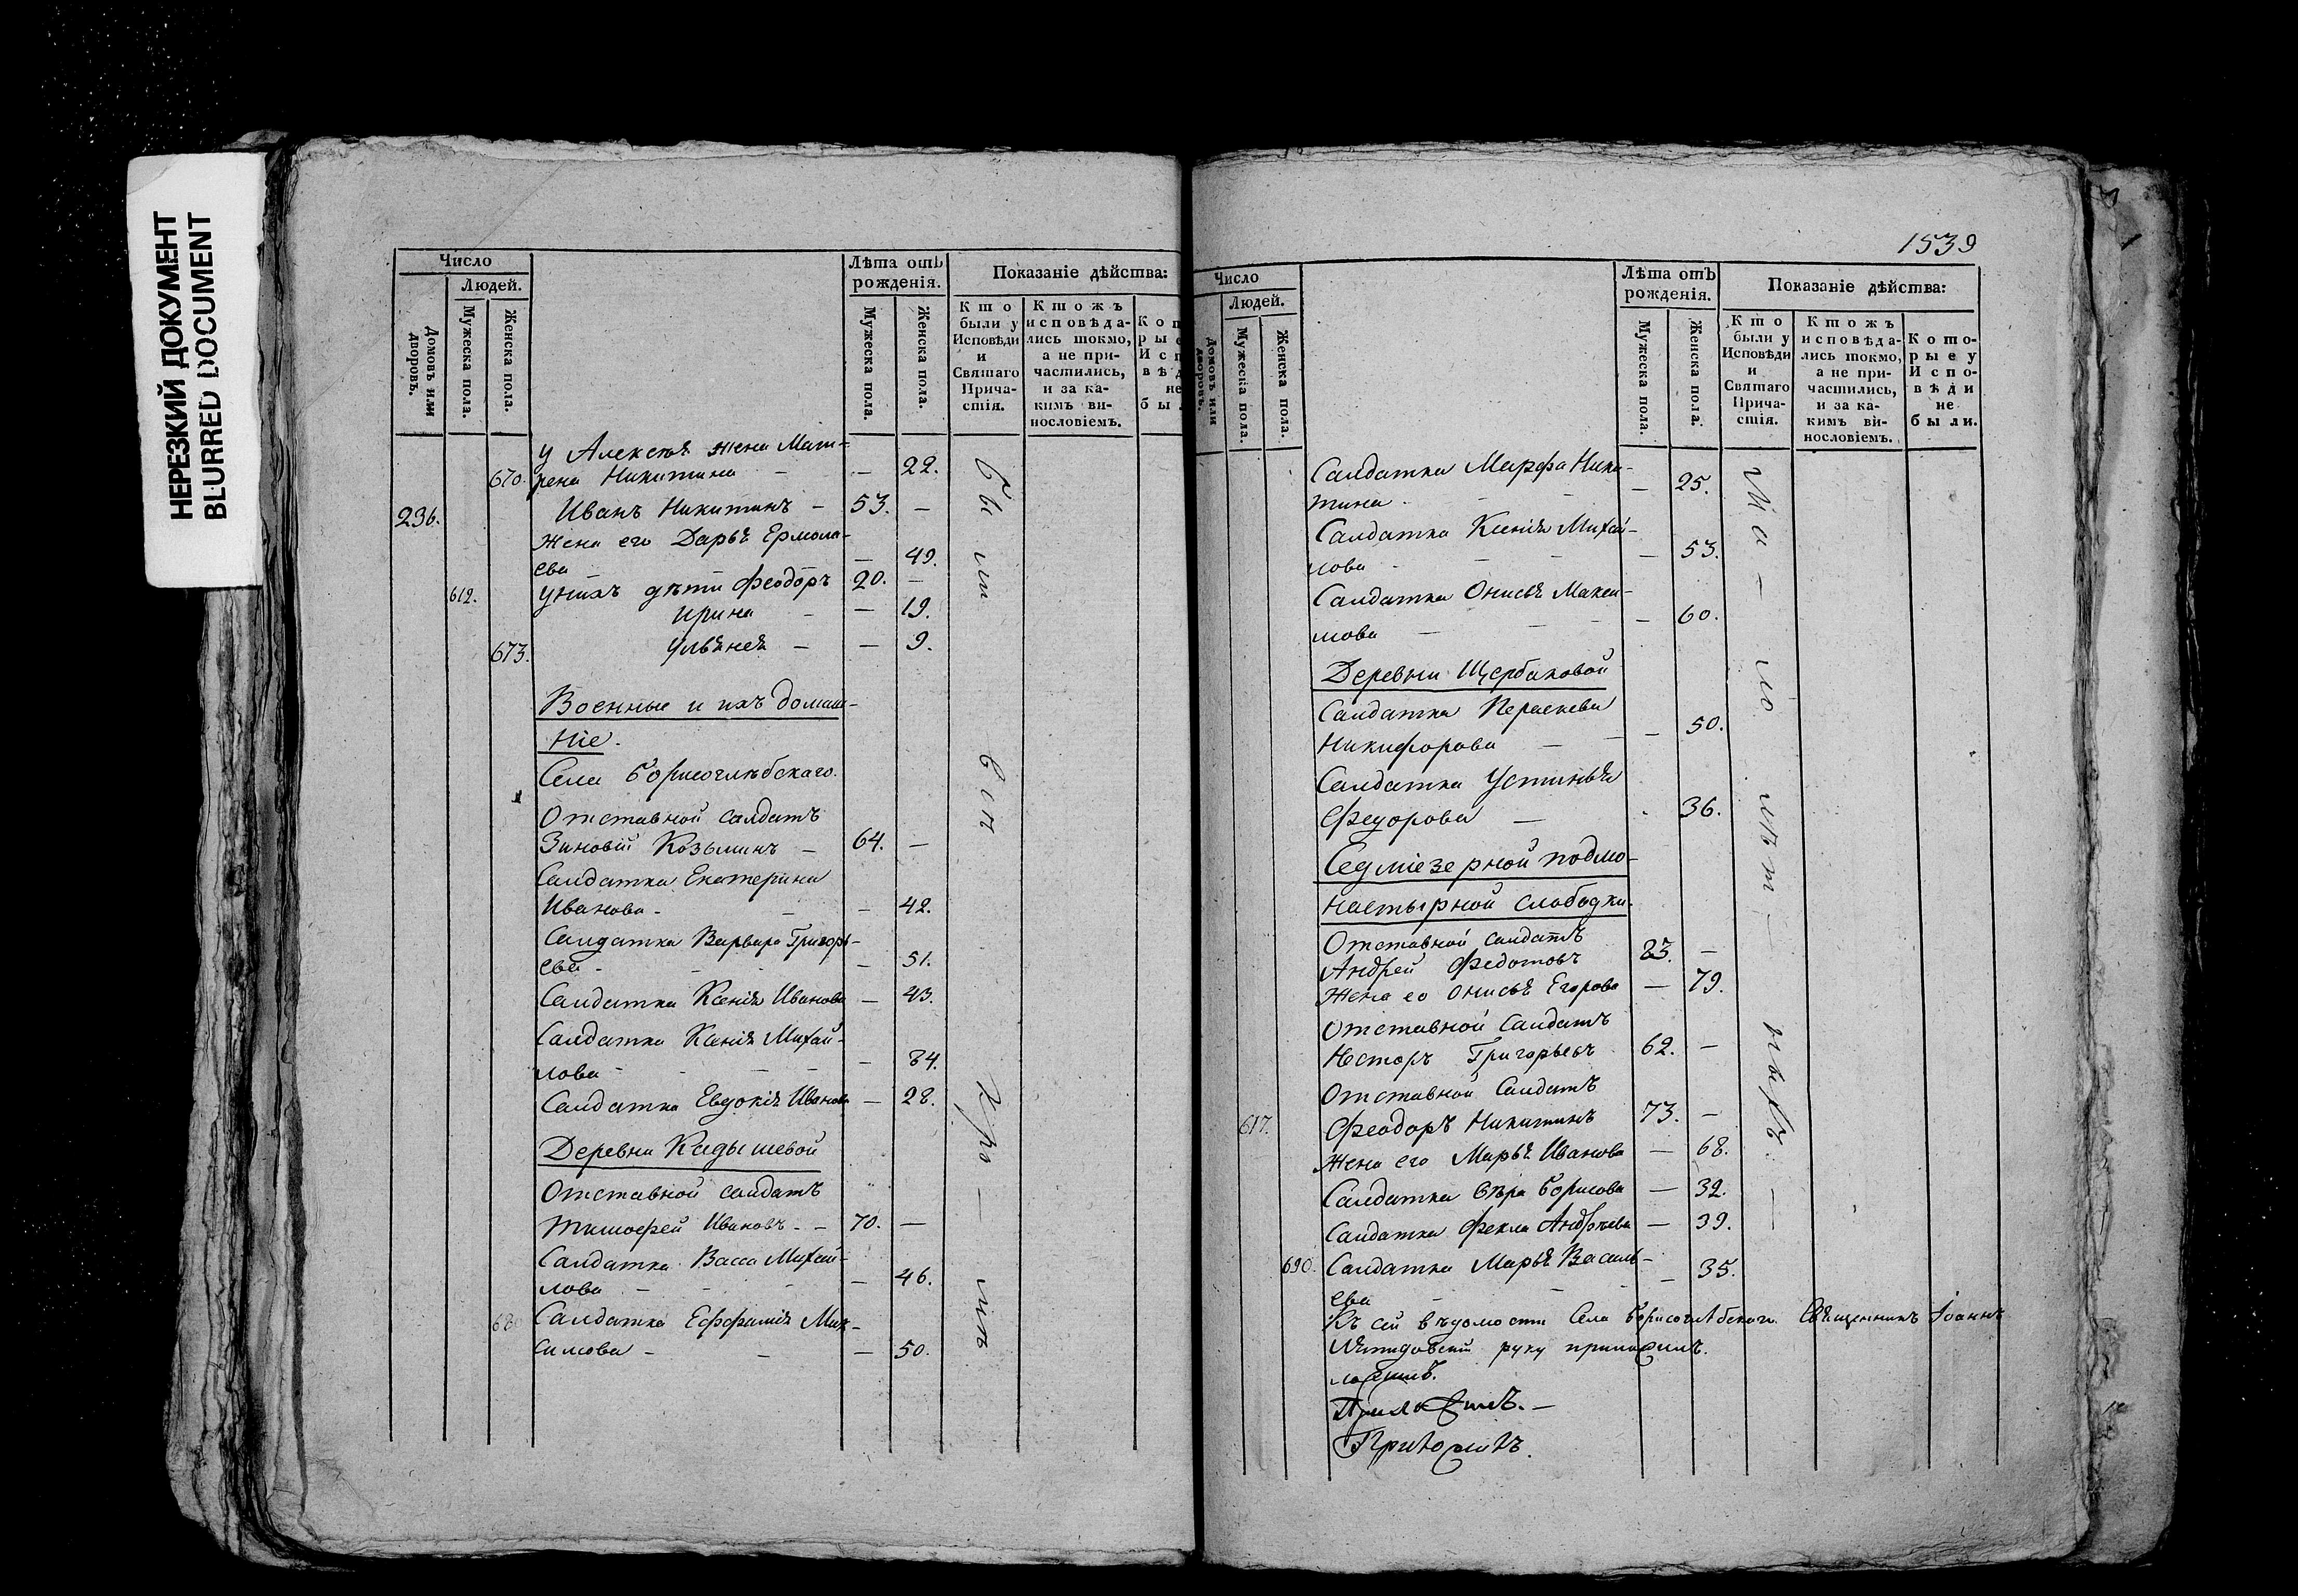 НЕРЕЗКИЙ ДОКУМЕНТ
BLURRED DOCUMENT
Число
Людей.
Домовъ или дворовъ.
Мужеска пола.
Женска пола.
Лѣта отъ рожденія.
Мужеска пола.
Женска пола.
Показаніе дѣйства:
Кто были у Исповѣди и Святаго Причастія.
Ктожъ исповѣдались токмо, а не причастились, и за какимъ винословіемъ.
у Алексѣя жена Мат-
670. рена Никитина - — 22.
236. Иванъ Никитинъ - 53. —
Жена его Дарья Ермола-
ева — 49.
612. у нихъ дѣти Феодоръ 20. —
Ирина - — 19.
673. Ульянея - — 9.
Военные и ихъ домаш-
ніе.
Села Борисоглѣбскаго.
Отставной салдатъ
Зиновій Козьминъ - 64. —
Салдатка Екатерина
Иванова - - — 42.
Салдатка Варвара Григорь-
ева - — 51.
Салдатка Ксенія Иванова — 43.
Салдатка Ксенія Михай-
лова - — 84.
Салдатка Евдокія Иванова — 28.
Деревни Кадышевой
Отставной салдатъ
Тимофей Ивановъ - - 70. —
Салдатка Васса Михай-
лова - — 46.
680 Салдатка Ефимія Мак-
симова - - — 50.
Были
всѣ
Хро-
мѣ
1539
Число
Людей.
Домовъ или дворовъ.
Мужеска пола.
Женска пола.
Лѣта отъ рожденія.
Мужеска пола.
Женска пола.
Показаніе дѣйства:
Кто были у Исповѣди и Святаго Причастія.
Ктожъ исповѣдались токмо, а не причастились, и за какимъ винословіемъ.
Которые у Исповѣди не были.
Салдатка Марфа Ники-
тина - — 25.
Салдатка Ксенія Михай-
лова - — 53.
Салдатка Онисья Макси-
мова - — 60.
Деревни Щербаковой
Салдатка Параскева
Никифорова - — 50.
Салдатка Устинья
Федорова - 36.
Седміезерной подмо-
настырной слободки.
Отставной салдатъ
Андрей Федотовъ 83. —
Жена ео Онисья Егорова — 79.
Отставной салдатъ
Несторъ Григорьевъ 62. —
Отставной салдатъ
617. Феодоръ Никитинъ 73. —
Жена его Марья Иванова — 68.
Салдатка Вѣра Борисова — 32.
Салдатка Фекла Андреева — 39.
690. Салдатка Марья Василь-
ева — 35.
Ма-
ло
лѣт-
ныхъ. —
Къ сей вѣдомости Села Борисоглѣбскаго Священникъ Іоаннъ
руку приложилъ.